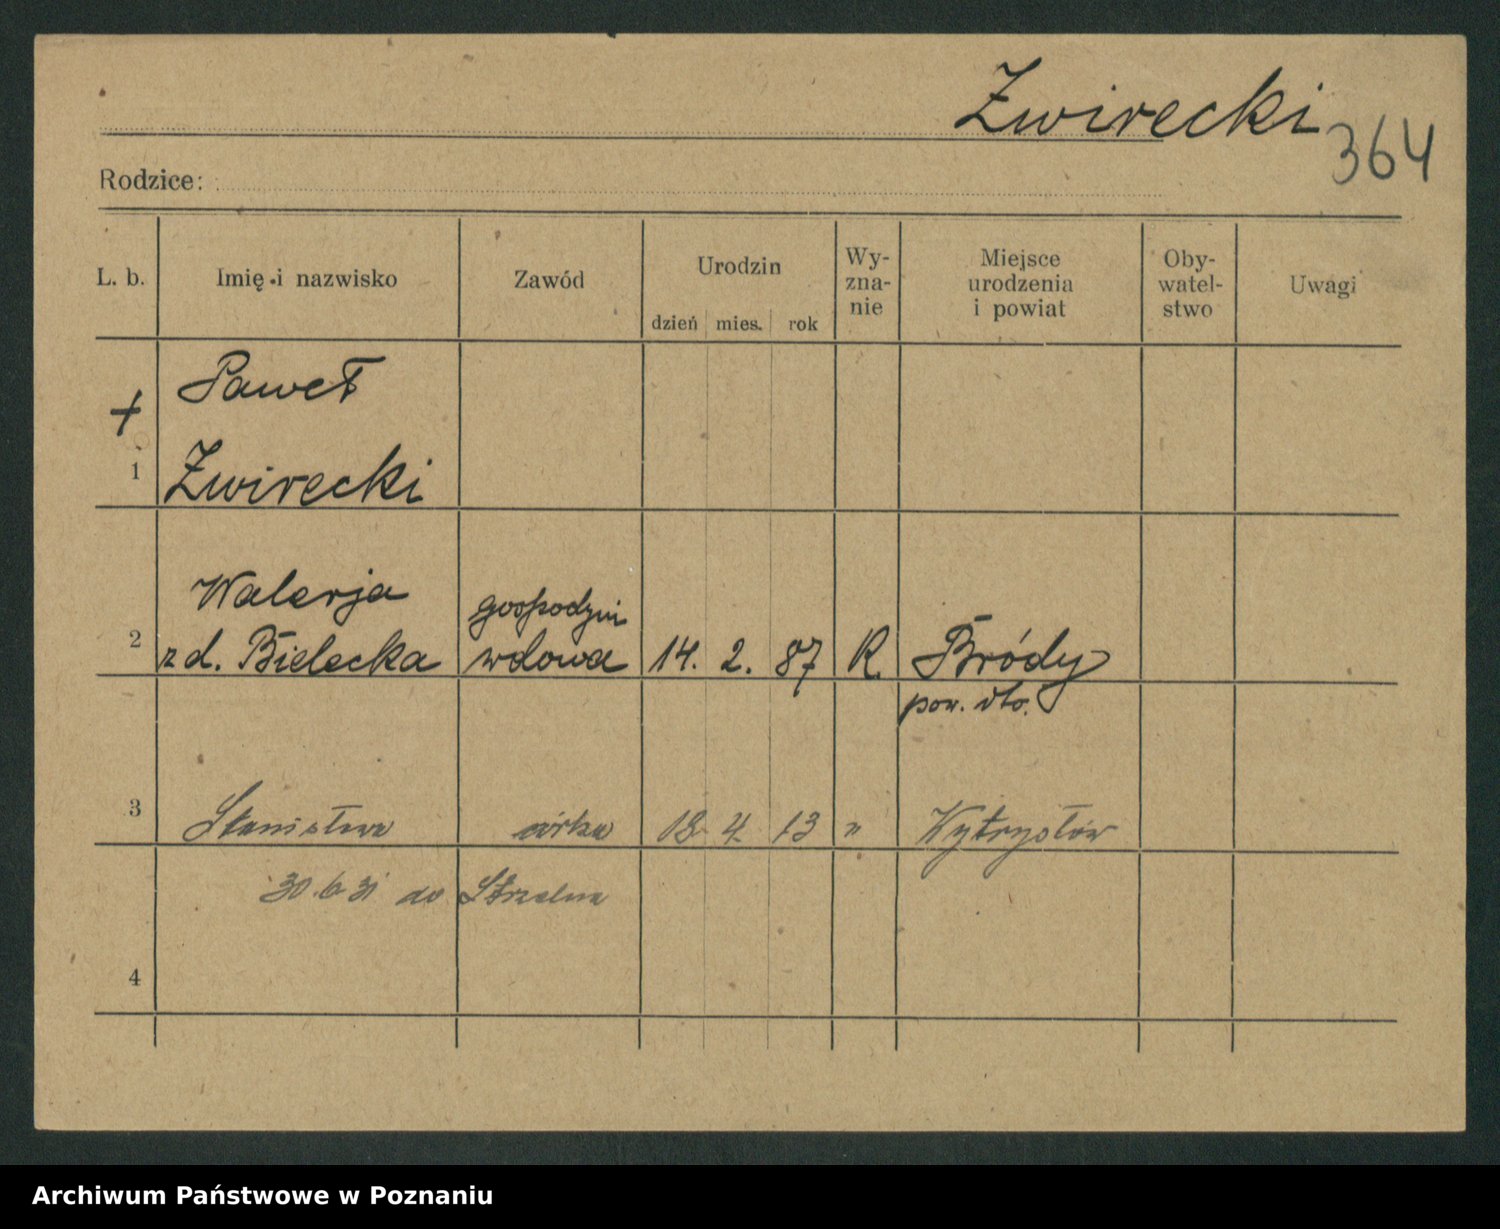 Zwirecki
364
Rodzice:
L. b. Imię i nazwisko Zawód Urodzin Wy-zna-nie Miejsce urodzenia i powiat Oby-watel-stwo Uwagi
dzień mies. rok
+ Paweł
1 Zwirecki
Walerja gospodyni
2 z d. Bielecka wdowa 14. 2. 87 R. Bródy
pow. dto.
3 Stanisława córka 18 4 13 "
30.6.31 do Strzelna
4
Archiwum Państwowe w Poznaniu